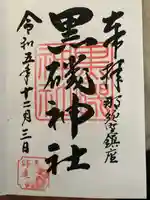 奉拝
那須笠鎮座
黒磯神社
令和五年十二月三日